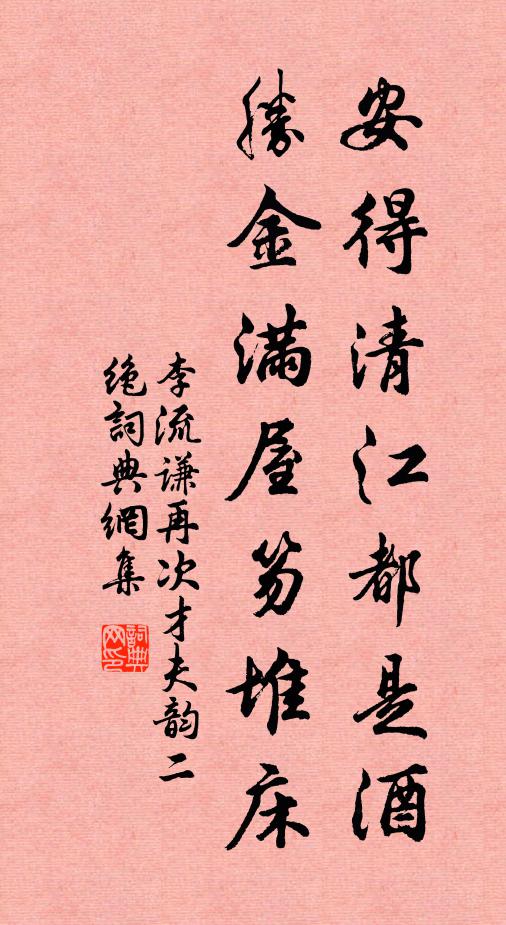 安得清江都是酒
勝金滿屋笏堆床
李流謙再次才夫韵二
絶詞典網集
詞典网印